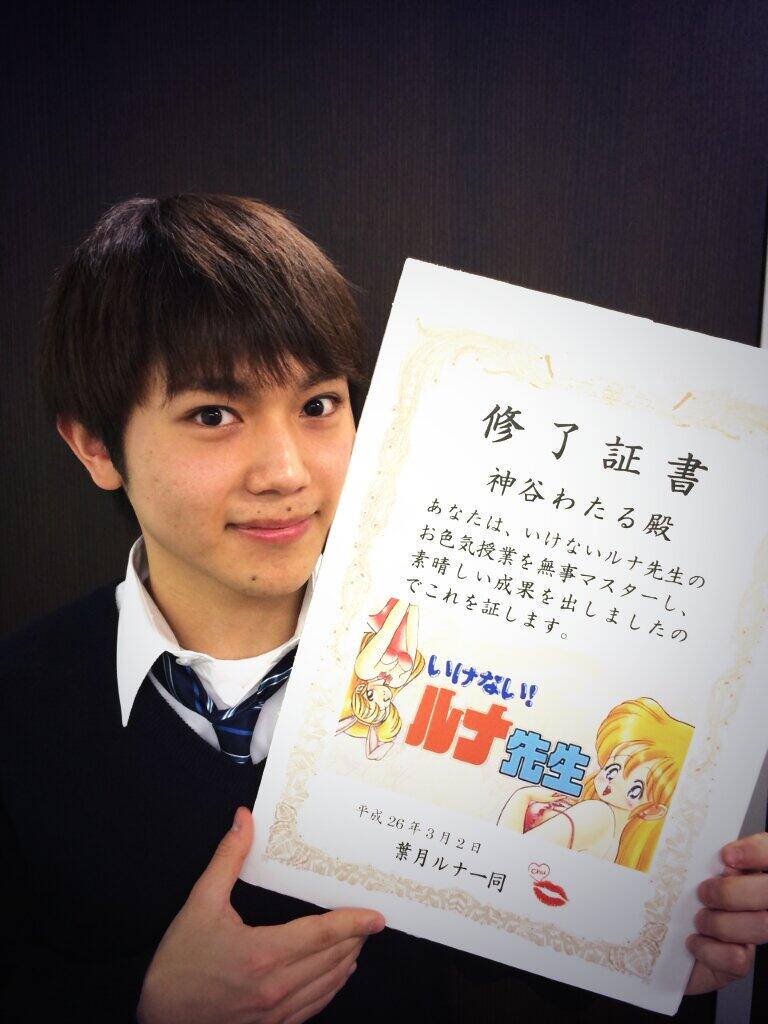 修了証書
神谷わたる殿
あなたは、いけないルナ先生の
お色気授業を無事マスターし、
素晴しい成果を出しましたの
でこれを証します。
いけない!
ルナ先生
平成26年3月2日
葉月ルナ一同
chu